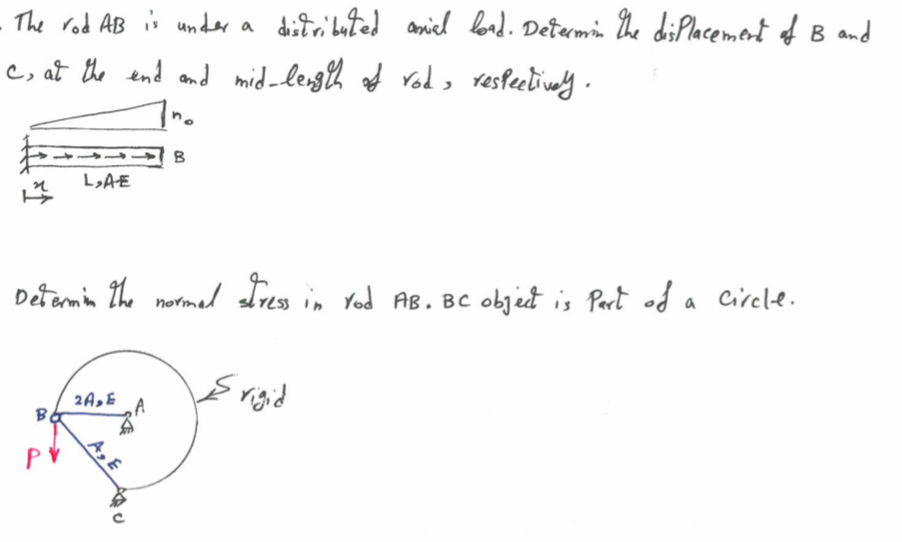 The rod AB is under a distributed axial load. Determin the displacement of B and
C, at the end and mid-length of rod, respectively.
n₀
B
L,AE
x
Determin the normal stress in rod AB. BC object is Part of a circle.
rigid
2A,E
A
B
A,E
P
C